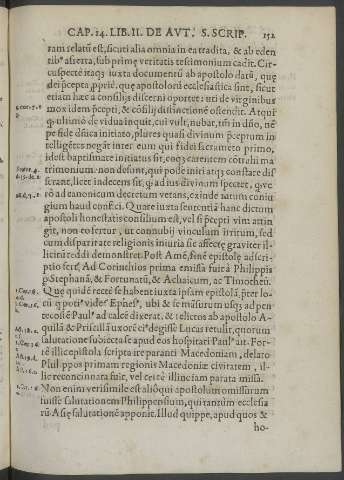 CAP. 14. LIB. II. DE AVT. S. SCRIP. 152
ram relatū est, sicuti alia omnia in ea tradita, & ab eden
tibꝰ asserta, sub primę veritatis testimonium cadit. Cir-
cuspectè itaqꝫ iuxta documentū ab apostolo datū, quę
dei p̄cepta, ꝓprié, quę apostoloni ecclesiastica sint, sicut
etiam hæc a consilijs discerni oportet: uti de virginibus
mox idem p̄cepti, & cōsilij distinctionē ostendit. Atqui
qꝫ ultimò de vidua inquit, cui vult, nubat, tm̄ in dño, nē
pe fide disica initiato, plures quasi divinum p̄ceptum in
telligētes negāt inter eum qui fidei sacramēto primo,
idest baptismate initiatus sit, eoqꝫ carentem cōtrahi ma
trimonium non desunt, qui pode iniri atqꝫ constare dis
serant, licet indecens sit, qꝫ ad ius divinum spectet, quę
rò ad canonicum decretum vetans, exinde natum coniu
gium haud confici. Quare iuxta sententiā hanc dictum
apostoli honestatis consilium est, vel si p̄cepti vim attin
git, non eo fertur, ut connubij vinculum irritum, sed
cum disparitate religionis iniuria sic affectę graviter il-
licitū reddi demonstret. Post Amē, fine epistolę adscri-
ptio fert, Ad Corinthios prima emissa fuit à Philippis
p Stephanā, & Fortunatū, & Achaicum, ac Timotheū.
Quę quidē recte se habent iuxta ipsam epistolā, pter lo-
cū qꝫ potiꝰ videt Ephesꝰ, ubi & se māsurum usqꝫ ad pen
tecostē Paulꝰ ad calcē dixerat, & relictos ab apostolo A-
quilā & Priscillā uxorē eiꝰ degisse Lucas retulit, quorum
salutatione subiecta se apud eos hospitari Paulꝰ ait. For-
tè illic epistola scripta ire paranti Macedoniam, delato
Philippos primam regionis Macedoniæ civitatem, il-
lic reconcinnata fuit, vel certè illinc iam parata missa.
Non enim verisimile est alioqui apostolum omissurum
fuisse salutationem Philippensium, qui tantum ecclesia
rū Asię salutationē apponit. Illud quippe, apud quos &
ho-